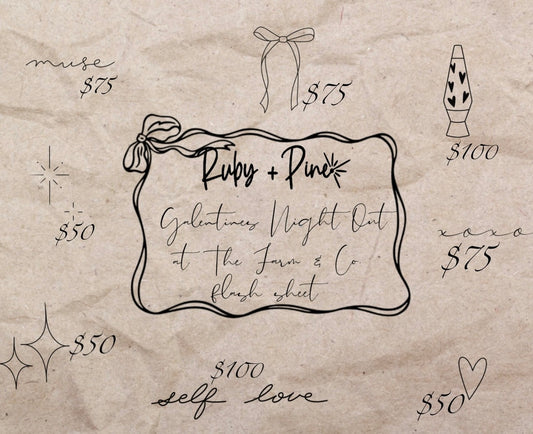 muse
$75
$75
$100
Ruby + Pine
Galentines Night Out
at The Farm & Co
flash sheet
$50
xoxo
$75
$50
$100
self love
$50